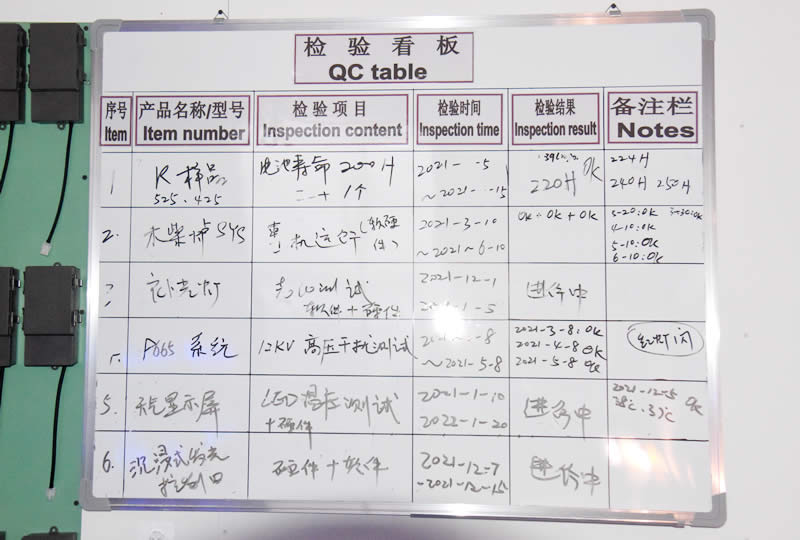 检验看板
QC table
序号 产品名称/型号 检验项目 检验时间 检验结果 备注栏
Item Item number Inspection content Inspection time Inspection result Notes
1 K 样品 电池寿命 200H 2021- -5 220H OK 224H
525. 425 二十 1个 ~2021- -15 240H 250H
2. SYS 机运行 (软硬件) 2021-3-10 OK OK + OK 5-20:OK
~2021-6-10 4-10:OK
5-10:OK
6-10:OK
补光灯 测试 2021-12-1 进行中
软件+硬件 -1-5
A665 系统 12KV 高压干扰测试 -8 2021-3-8:OK 红灯闪
~2021-5-8 2021-4-8 OK
2021-5-8 OK
5. 显示屏 LED 测试 2021-1-10 进行中 2021-12-5 OK
+硬件 2022-1-20 28℃.37℃
6. 沉浸式 硬件+软件 2021-12-7 进行中
-2021-12-15